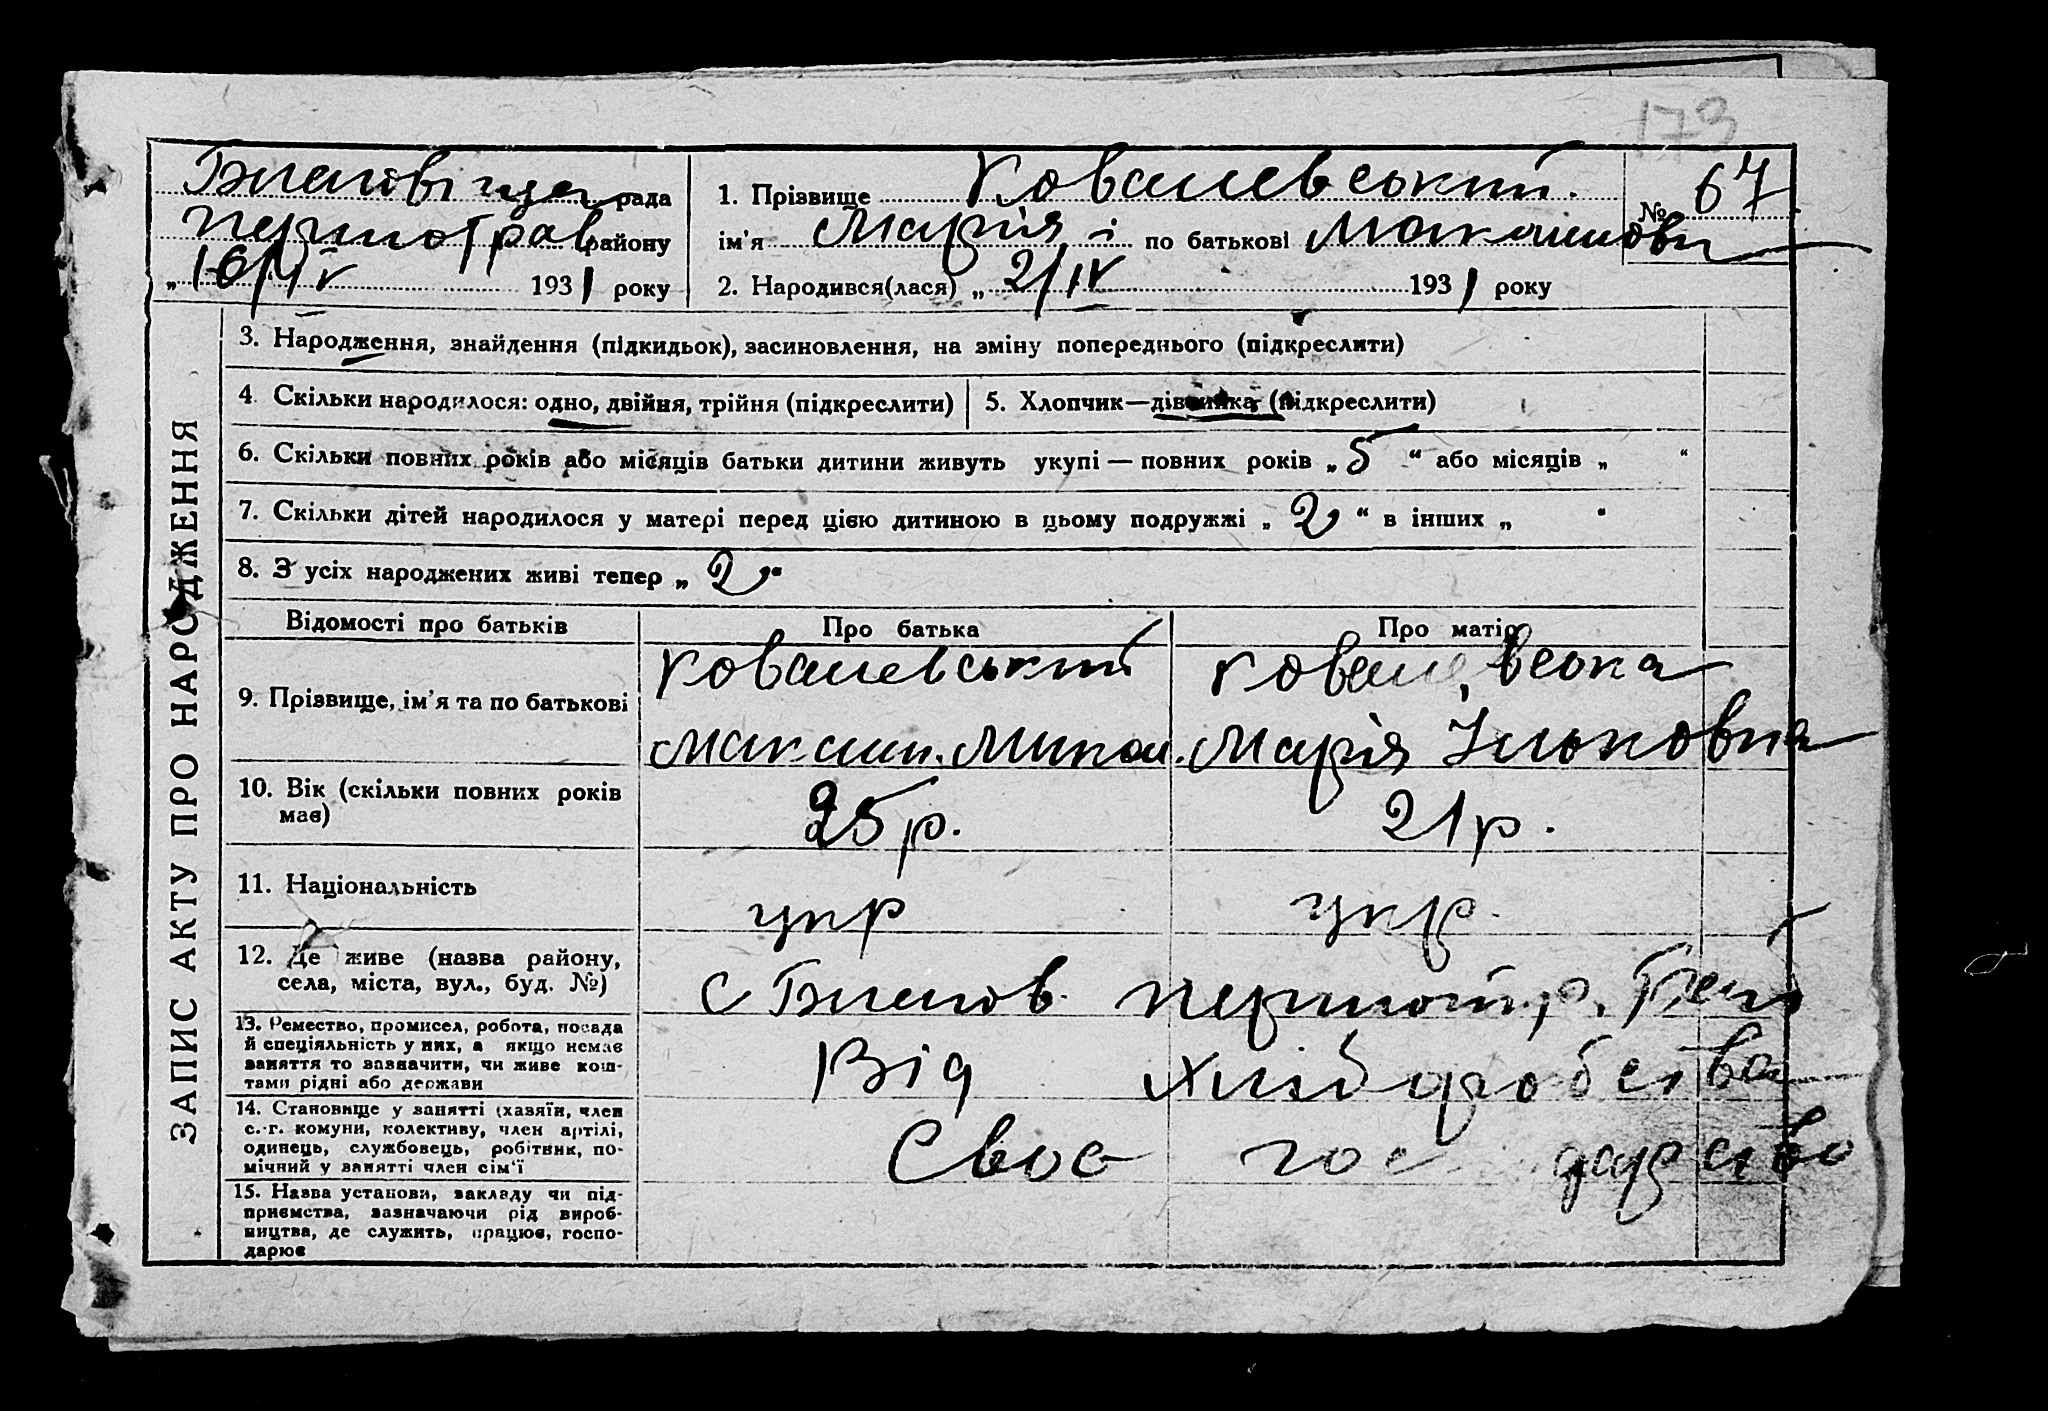 173
Благовіщен рада
Першотрав району
„ 16/IV 1931 року
1. Прізвище Ковалевський.
ім'я Марія по батькові Максимовн
№ 67
2. Народився(лася) „ 2/IV 1931 року
ЗАПИС АКТУ ПРО НАРОДЖЕННЯ
3. Народження, знайдення (підкидьок), засиновлення, на зміну попереднього (підкреслити)
4. Скільки народилося: одно, двійня, трійня (підкреслити)
5. Хлопчик—дівчинка, (підкреслити)
6. Скільки повних років або місяців батьки дитини живуть укупі — повних років „ 5 “ або місяців „ “
7. Скільки дітей народилося у матері перед цією дитиною в цьому подружжі „ 2 “ в інших „ “
8. З усіх народжених живі тепер „ 2 “
Відомості про батьків
Про батька
Про матір
9. Прізвище, ім'я та по батькові
Ковалевський
Максим. Микол.
Ковалевська
Марія Ільковна
10. Вік (скільки повних років
має)
25 р.
21 р.
11. Національність
укр
укр.
12. Де живе (назва району,
села, міста, вул., буд. №)
С Благов. Першотр.
13. Ремество, промисел, робота, посада
й спеціяльність у них, а якщо немає
заняття то зазначити, чи живе кош-
тами рідні або держави
Від хліборобства
14. Становище у занятті (хазяїн, член
с.-г. комуни, колективу, член артілі,
одинець, службовець, робітник, по-
мічний у занятті член сім'ї
Своє господарство
15. Назва установи, закладу чи під-
приємства, зазначаючи рід вироб-
ництва, де служить, працює, госпо-
дарює